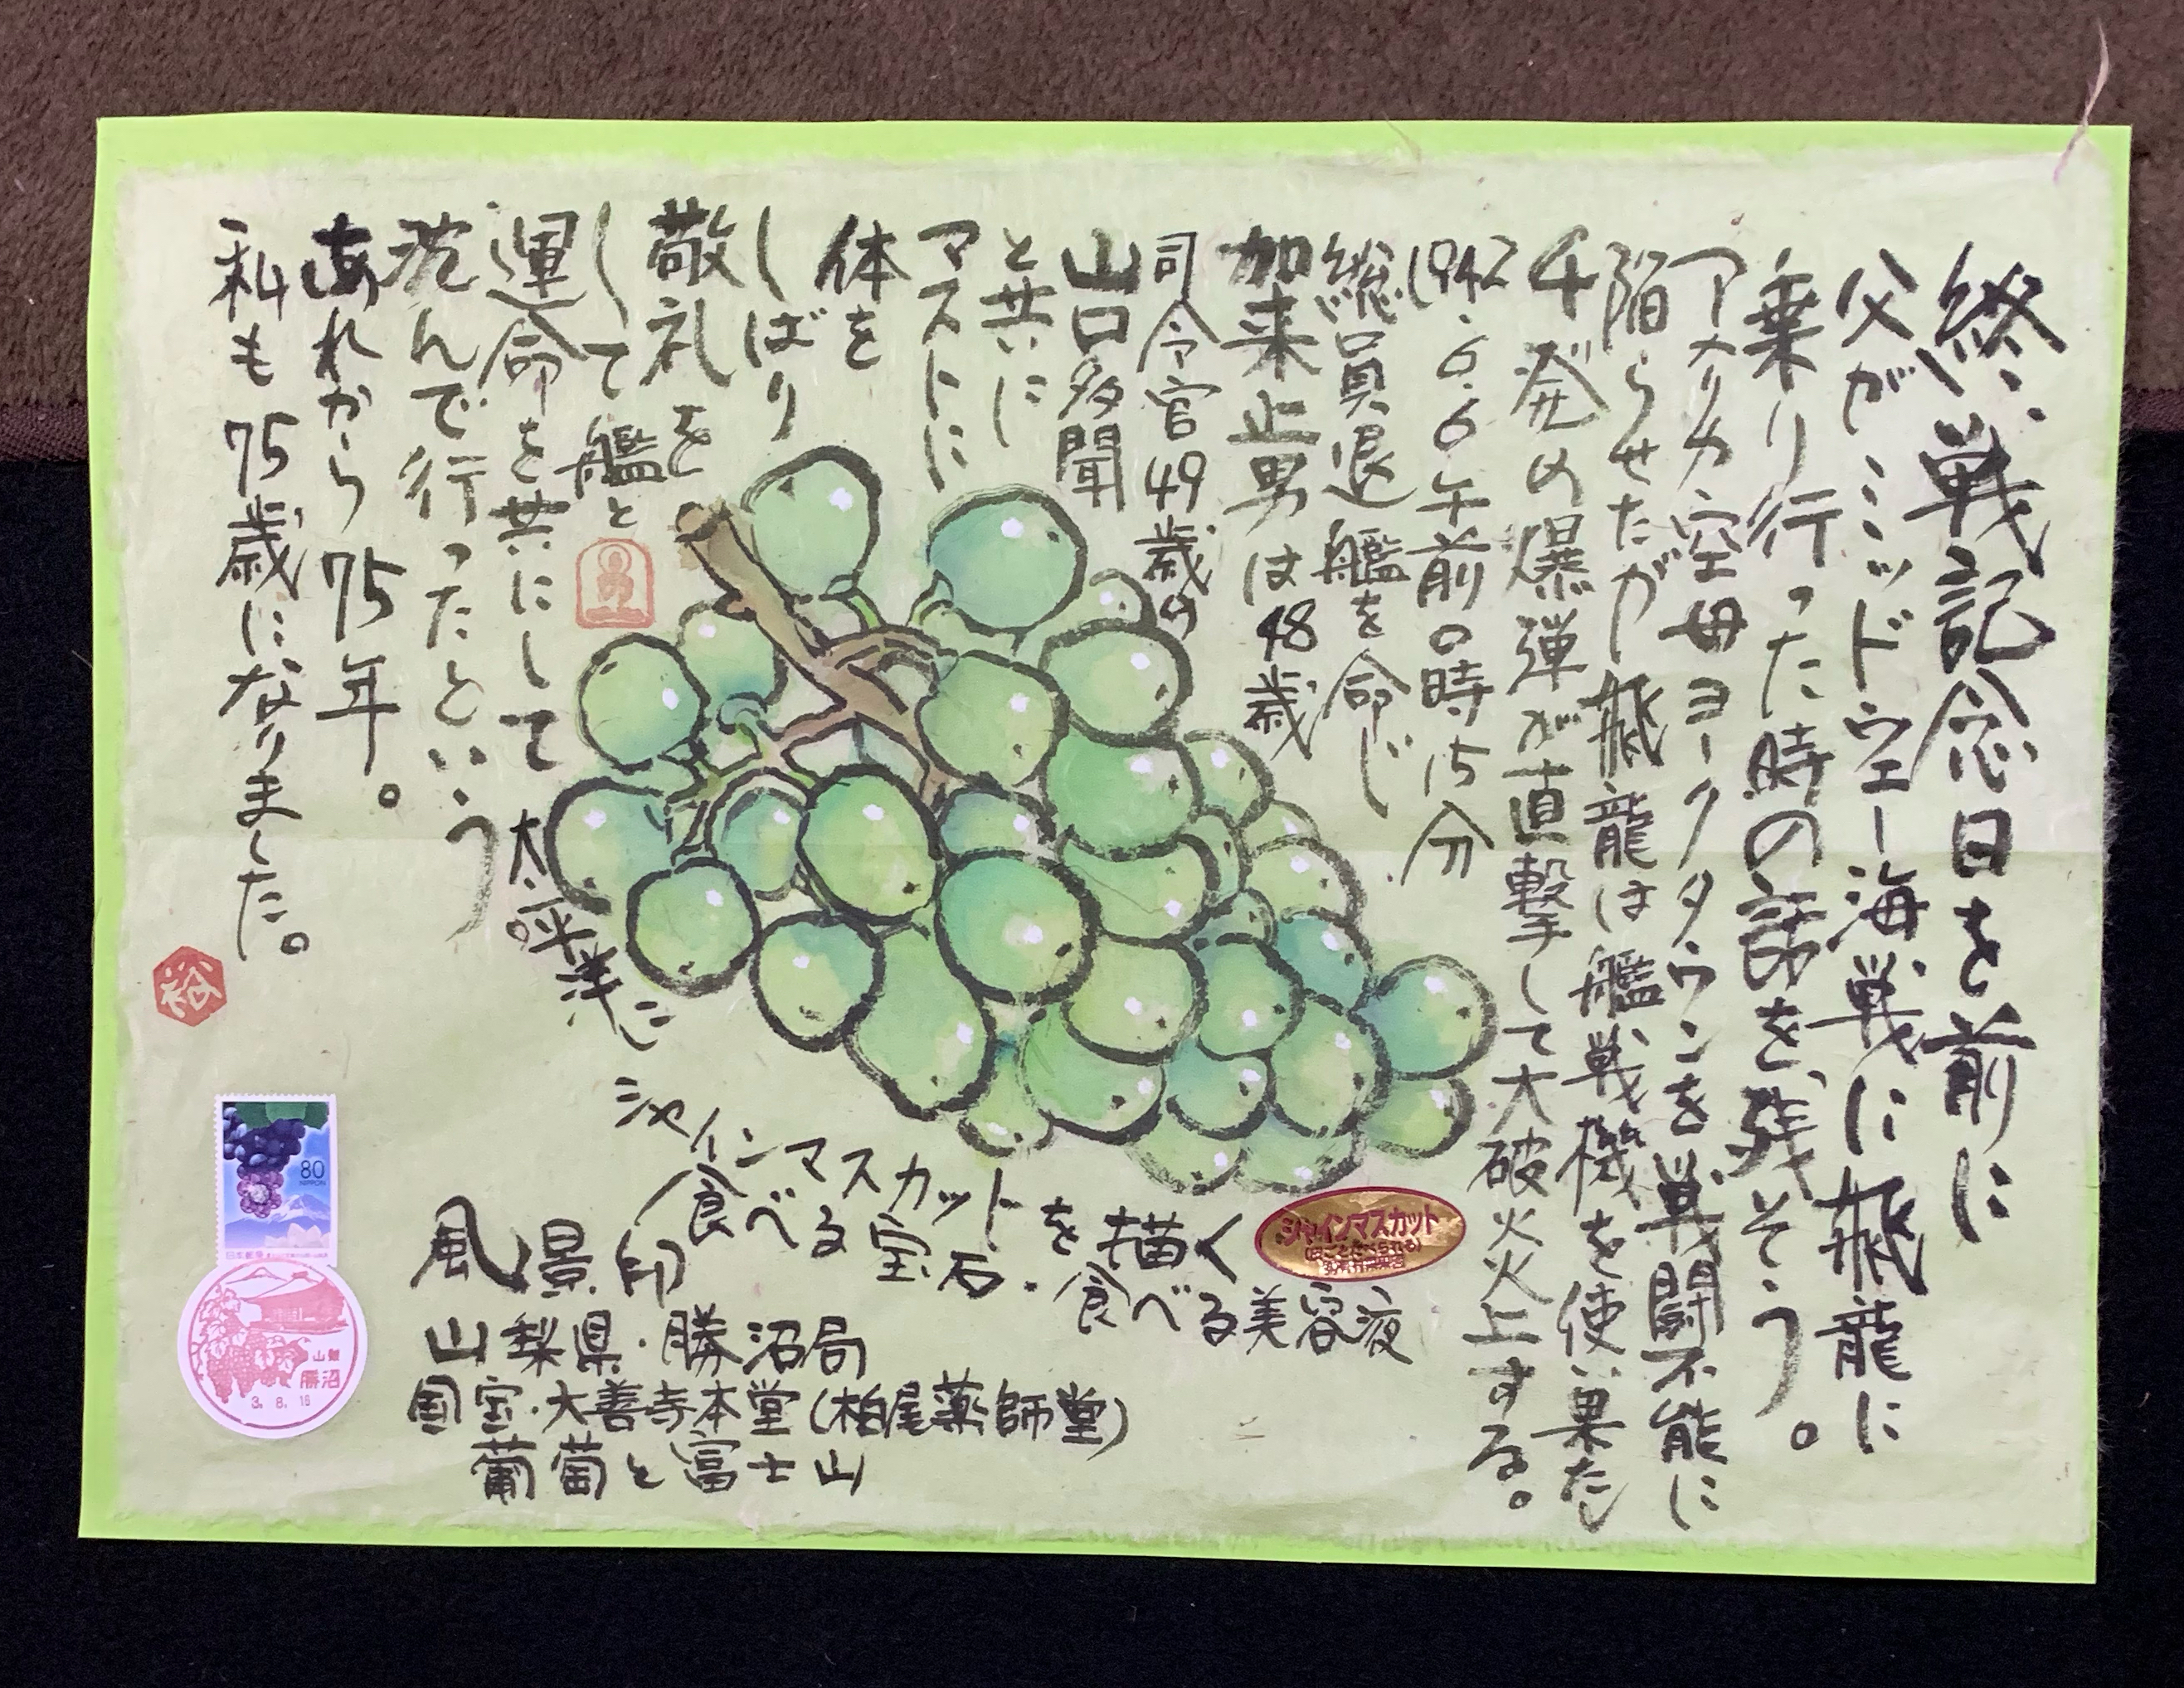 終戦記念日を前に
父がミッドウェー海戦に飛龍に
乗り行った時の話を残そう。
アメリカ空母ヨークタウンを戦闘不能に
陥らせたが飛龍は艦戦機を使い果たし
4発の爆弾が直撃して大破火災上する。
1942.6.6午前の時15分
総員退艦を命じ
加来止男は48歳
司令官49歳の
山口多聞
と共に
マストに
体を
しばり
敬礼を
して艦と
運命を共にして
太平洋に
沈んで行ったという
あれから75年。
私も75歳になりました。
裕
シャインマスカットを描く
食べる宝石.食べる美容液
シャインマスカット
(皮ごとたべられる)
風景印
山梨県・勝沼局
国宝・大善寺本堂(柏尾薬師堂)
葡萄と富士山
80
NIPPON
日本郵便
山梨
勝沼
3.8.16